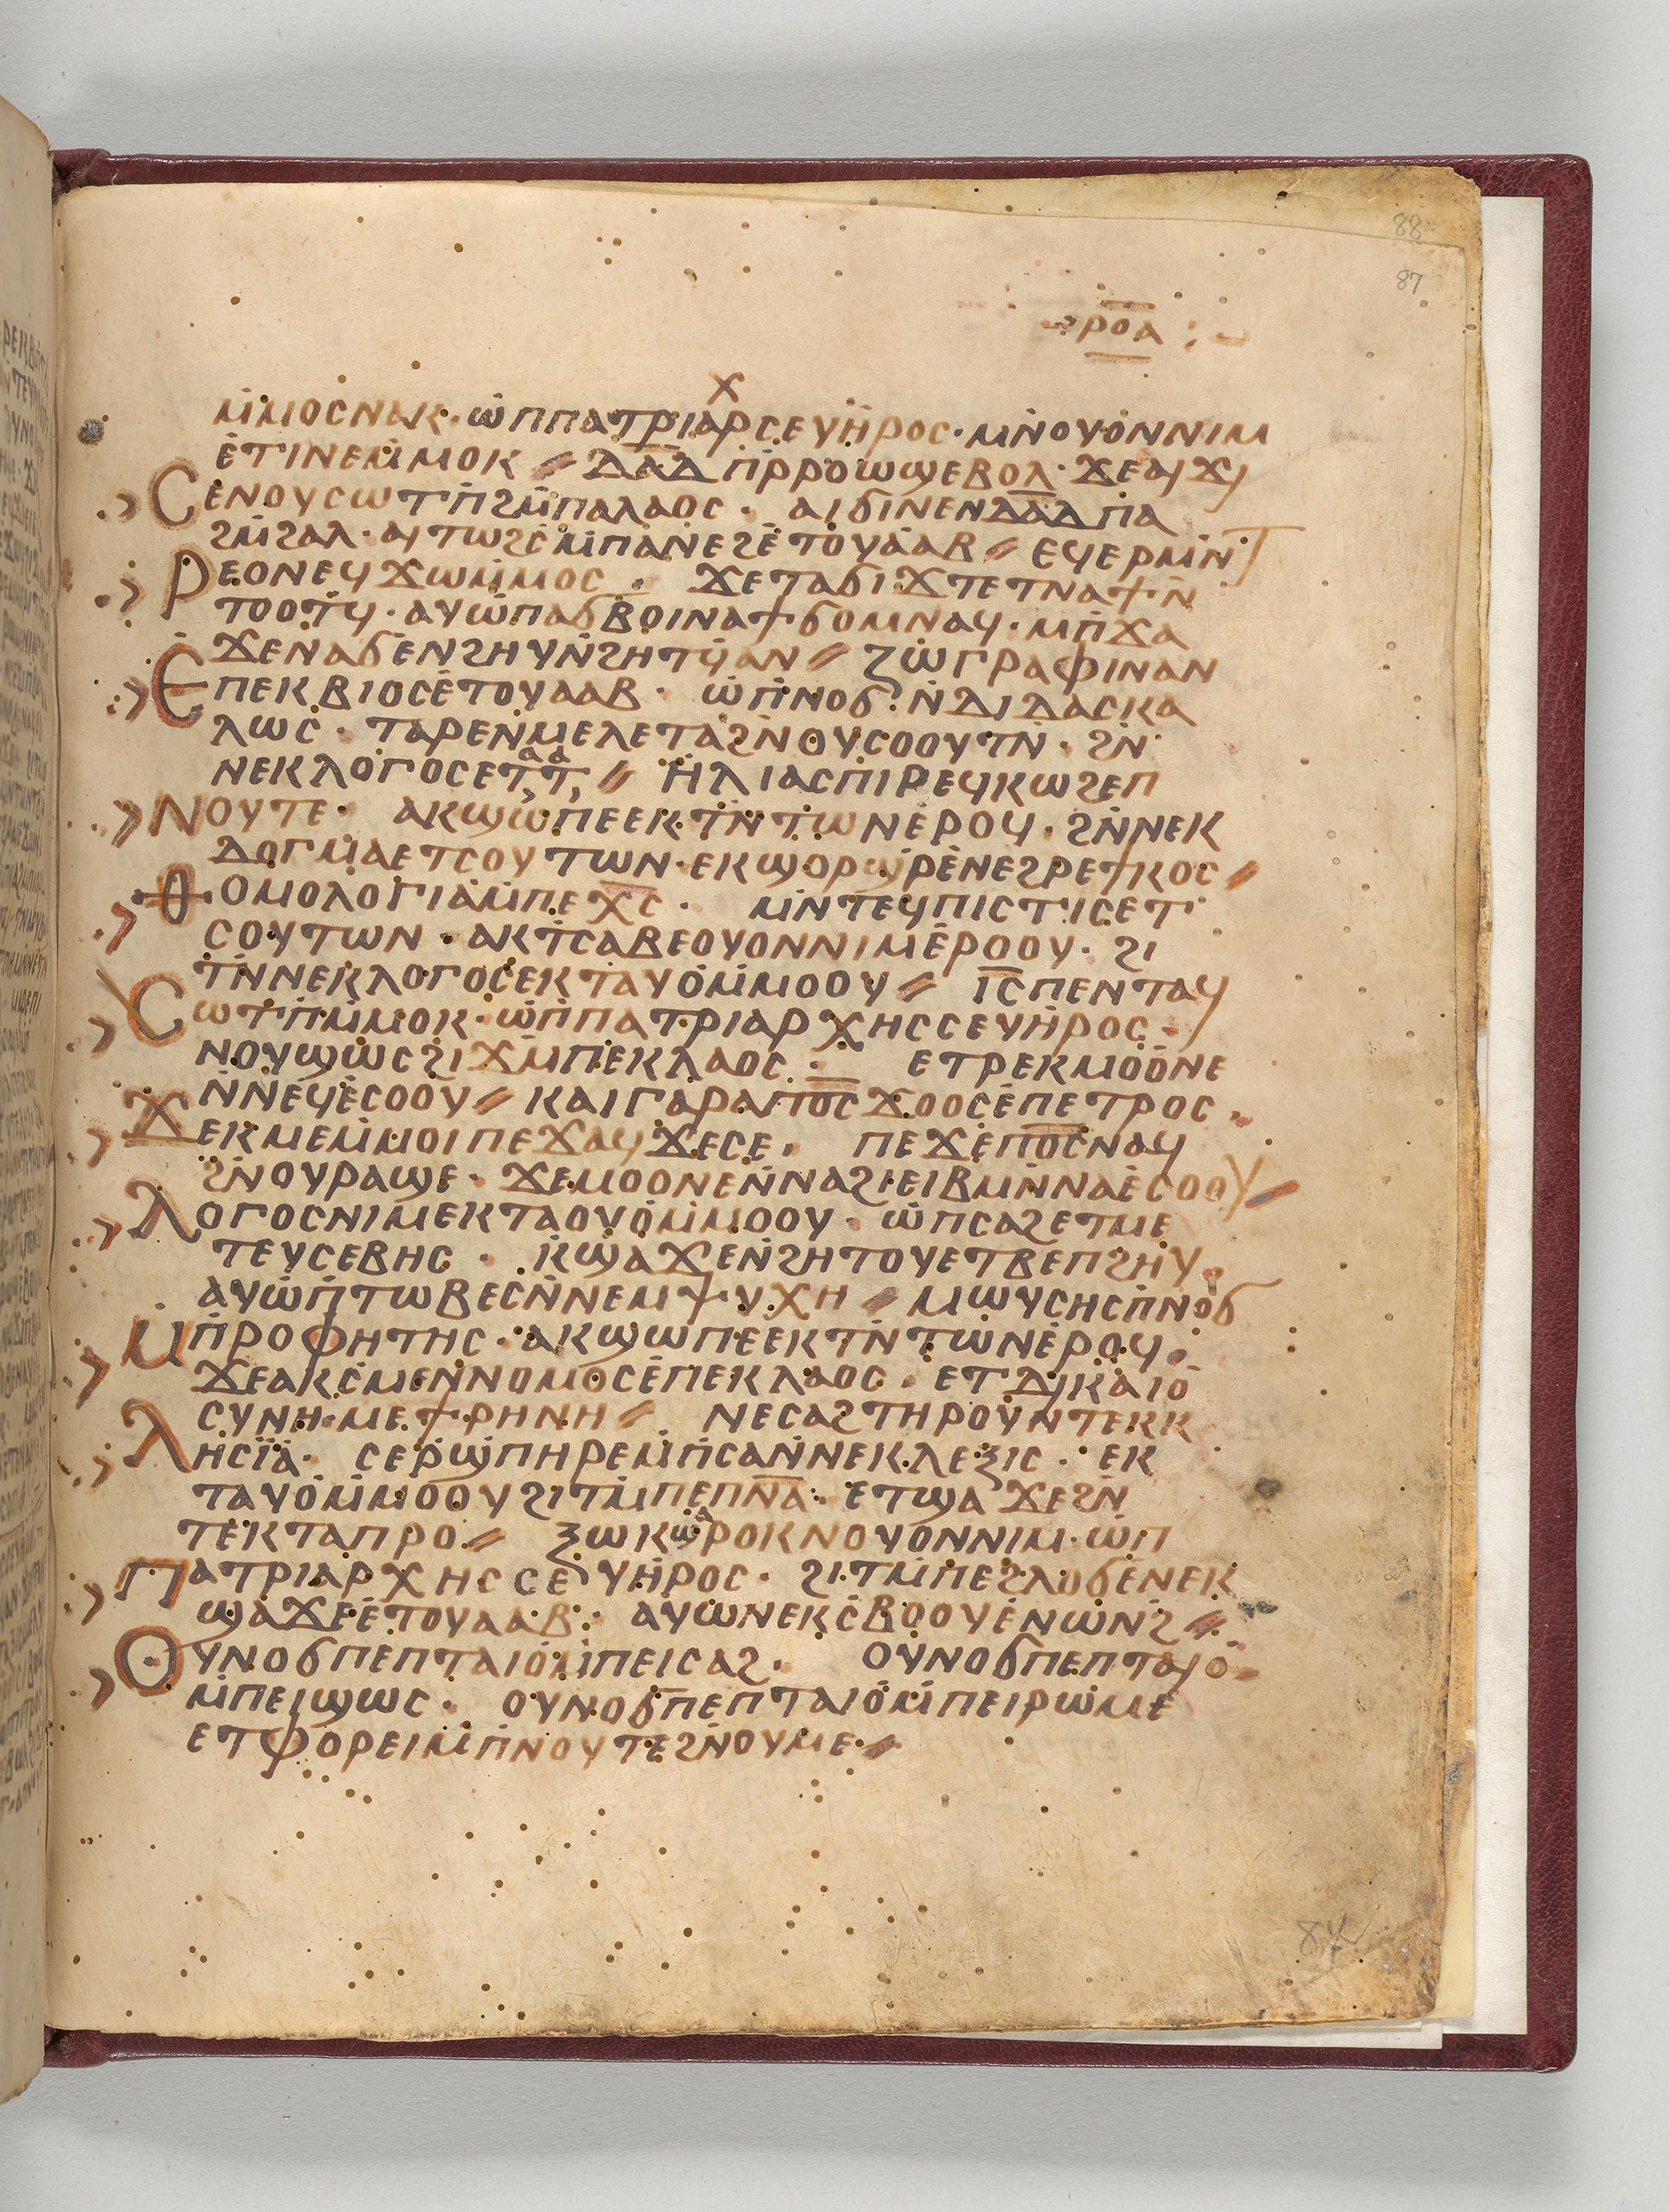 88
87
ⲣⲟⲁ
ⲙ̇ⲙⲟⲥⲛⲁⲕ· ⲱ̇ⲡⲡⲁⲧⲣⲓⲁⲣⲭⲥⲉⲩⲏ̇ⲣⲟⲥ· ⲙⲛ̇ⲟⲩⲟ̇ⲛⲛⲓⲙ
ⲉ̇ⲧⲓⲛⲉⲙ̇ⲙⲟⲕ⸗ ⲇⲁ̅ⲇ̅ ⲡ̇ⲣ̇ⲣⲟⲱϣⲉⲃⲟⲗ· ϫⲉⲁϥϫⲓ
Ⲥⲉⲛⲟⲩⲥⲱⲧⲡ̇ϩⲙ̇ⲡⲁⲗⲁⲟⲥ· ⲁⲓϭⲓⲛⲉⲛⲇⲁ̅ⲇ̅ⲡⲁ
ϩⲙ̇ϩⲁⲗ· ⲁϥⲧⲱϩⲥ̇ⲙ̇ⲡⲁⲛⲉϩⲉ̇ⲧⲟⲩⲁ̇ⲁⲃ⸗ ⲉϥⲉⲣⲙⲛ̇ⲧ
Ⲣⲉⲟⲛⲉϥϫⲱⲙ̇ⲙⲟⲥ· ϫⲉⲧⲁϭⲓϫⲧⲉⲧⲛⲁϯⲛ̇
ⲧⲟⲟⲧϥ̇· ⲁⲩⲱ̇ⲡⲁϭⲃⲟⲓⲛⲁϯϭⲟⲙⲛⲁϥ· ⲙⲡ̇ϫⲁ
ϫⲉⲛⲁϭⲉ̇ⲛϩⲏⲩⲛ̇ϩⲏⲧϥ̇ⲁⲛ⸗ ⲍⲱ̇ⲅⲣⲁⲫⲓⲛⲁⲛ
Ⲉⲡⲉⲕⲃⲓⲟⲥⲉ̇ⲧⲟⲩⲁⲁⲃ· ⲱ̇ⲡ̇ⲛⲟϭ ⲛ̇ⲇⲓⲇⲁⲥⲕⲁ
ⲗⲱⲥ̇· ⲧⲁⲣⲉⲛ̇ⲙⲉⲗⲉⲧⲁϩⲛ̇ⲟⲩⲥⲟⲟⲩⲧⲛ̇· ϩⲛ̇
ⲛⲉⲕⲗⲟⲅⲟⲥⲉⲧⲁⲧⲁ⸗ ⲏ̇ⲗⲓⲁⲥⲡⲓⲣⲉϥⲕⲱϩⲉⲡ
Ⲛⲟⲩⲧⲉ· ⲁⲕϣⲱ̇ⲡⲉⲉⲕⲧⲛ̇ⲧⲱⲛⲉ́ⲣⲟϥ· ϩⲛ̇ⲛⲉⲕ
ⲇⲟⲅⲙ̇ⲁⲉⲧⲥⲟⲩⲧⲱⲛ· ⲉⲕϣⲟⲣϣⲣ̇ⲉ̇ⲛⲉϩⲣⲉϯⲕⲟⲥ⸗
Ⲑⲟⲙⲟⲗⲟⲅⲓⲁⲙ̇ⲡⲉⲭ̅ⲥ̅· ⲙⲛ̇ⲧⲉϥⲡⲓⲥⲧⲓⲥⲉⲧ
ⲥⲟⲩⲧⲱⲛ· ⲁⲕⲧⲥⲁⲃⲉⲟⲩⲟⲛⲛⲓⲙⲉ́ⲣⲟⲟⲩ· ϩⲓ
ⲧⲛ̇ⲛⲉⲕⲗⲟⲅⲟⲥⲉⲕⲧⲁⲩⲟ̇ⲙ̇ⲙⲟⲟⲩ⸗ ⲓ̅ⲥ̅ⲡⲉⲛⲧⲁϥ
Ⲥⲱⲧⲡ̇ⲙ̇ⲙⲟⲕ· ⲱ̇ⲡ̇ⲡⲁⲧⲣⲓⲁⲣⲭⲏⲥⲥⲉⲩⲏ̇ⲣⲟⲥ·
ⲛⲟⲩϣⲱ̇ⲥϩⲓϫⲙ̇ⲡⲉⲕⲗⲁⲟⲥ· ⲉⲧⲣⲉⲕⲙⲟⲟ̇ⲛⲉ
ⲛ̇ⲛⲉϥⲉ̇ⲥⲟⲟⲩ⸗ ⲕⲁⲓⲅⲁⲣⲁⲡ̅ⲟ̅ⲥ̅ϫⲟⲟⲥⲉ̇ⲡⲉⲧⲣⲟⲥ·
Ϫⲉⲕⲙⲉⲙ̇ⲙⲟⲓⲡⲉϫⲁϥϫⲉⲥⲉ· ⲡⲉϫⲉⲡ̅ⲟ̅ⲥ̅ⲛⲁϥ
ϩⲛ̇ⲟⲩⲣⲁϣⲉ· ϫⲉⲙⲟⲟⲛⲉⲛ̇ⲛⲁϩⲓⲉⲓⲃⲙⲛ̇ⲛⲁⲉ̇ⲥⲟⲟⲩ⸗
Ⲗⲟⲅⲟⲥⲛⲓⲙⲉⲕⲧⲁⲟⲩⲟ̇ⲙ̇ⲙⲟⲟⲩ· ⲱ̇ⲡⲥⲁϩⲉⲧⲙⲉ
ⲧⲉⲩⲥⲉⲃⲏⲥ· ⲕ̇ϣⲁϫⲉⲛ̇ϩⲏⲧⲟⲩⲉⲧⲃⲉⲡϩⲏⲩ·
ⲁⲩⲱ̇ⲡ̇ⲧⲱⲃⲉⲥⲛ̇ⲛⲉⲙⲯⲩⲭⲏ⸗ ⲙⲱⲩⲥⲏⲥⲡ̇ⲛⲟϭ
Ⲙⲡ̇ⲣⲟⲫⲏⲧⲏⲥ· ⲁⲕϣⲱⲡⲉⲉⲕⲧⲛ̇ⲧⲱⲛⲉ́ⲣⲟϥ·
ϫⲉⲁⲕⲥ̇ⲙⲉⲛ̇ⲛⲟⲙⲟⲥⲉ̇ⲡⲉⲕⲗⲁⲟⲥ· ⲉⲧⲇⲓⲕⲁⲓⲟ
ⲥⲩⲛⲏ·ⲙⲉϯⲣⲏⲛⲏ⸗ ⲛⲉⲥⲁϩⲧⲏⲣⲟⲩⲛ̇ⲧⲉⲕⲕ
Ⲗⲏⲥⲓ̈ⲁ· ⲥⲉⲣ̇ϣⲡⲏⲣⲉⲙ̇ⲡ̇ⲥⲁⲛ̇ⲛⲉⲕⲗⲉⲝⲓⲥ· ⲉⲕ
ⲧⲁⲩⲟ̇ⲙ̇ⲙⲟⲟⲩϩⲓⲧⲙ̇ⲡⲉⲡⲛ̅ⲁ̅· ⲉⲧϣⲁϫⲉϩⲛ̇
ⲧⲉⲕⲧⲁⲡⲣⲟ⸗ ⲝⲱⲕϣⲁⲣⲟⲕⲛⲟⲩⲟⲛⲛⲓⲙ· ⲱ̇ⲡ
Ⲡⲁⲧⲣⲓⲁⲣⲭⲏⲥⲥⲉⲩⲏ̇ⲣⲟⲥ· ϩⲓⲧⲙ̇ⲡⲉϩⲗⲟϭⲉ̇ⲛⲉⲕ
ϣⲁϫⲉⲉ̇ⲧⲟⲩⲁⲁⲃ· ⲁⲩⲱⲛⲉⲕⲥ̇ⲃⲟⲟⲩⲉ̇ⲛⲱⲛϩ̇⸗
Ⲟⲩⲛⲟϭⲡⲉⲡⲧⲁⲓⲟ̇ⲙ̇ⲡⲉⲓⲥⲁϩ· ⲟⲩⲛⲟϭⲡⲉⲡⲧⲁⲓⲟ̇
ⲙ̇ⲡⲉⲓϣⲱⲥ· ⲟⲩⲛⲟϭⲡⲉⲡⲧⲁⲓⲟ̇ⲙ̇ⲡⲉⲓⲣⲱⲙⲉ
ⲉⲧⲫⲟⲣⲉⲓⲙ̇ⲡ̇ⲛⲟⲩⲧⲉϩⲛ̇ⲟⲩⲙⲉ⸗